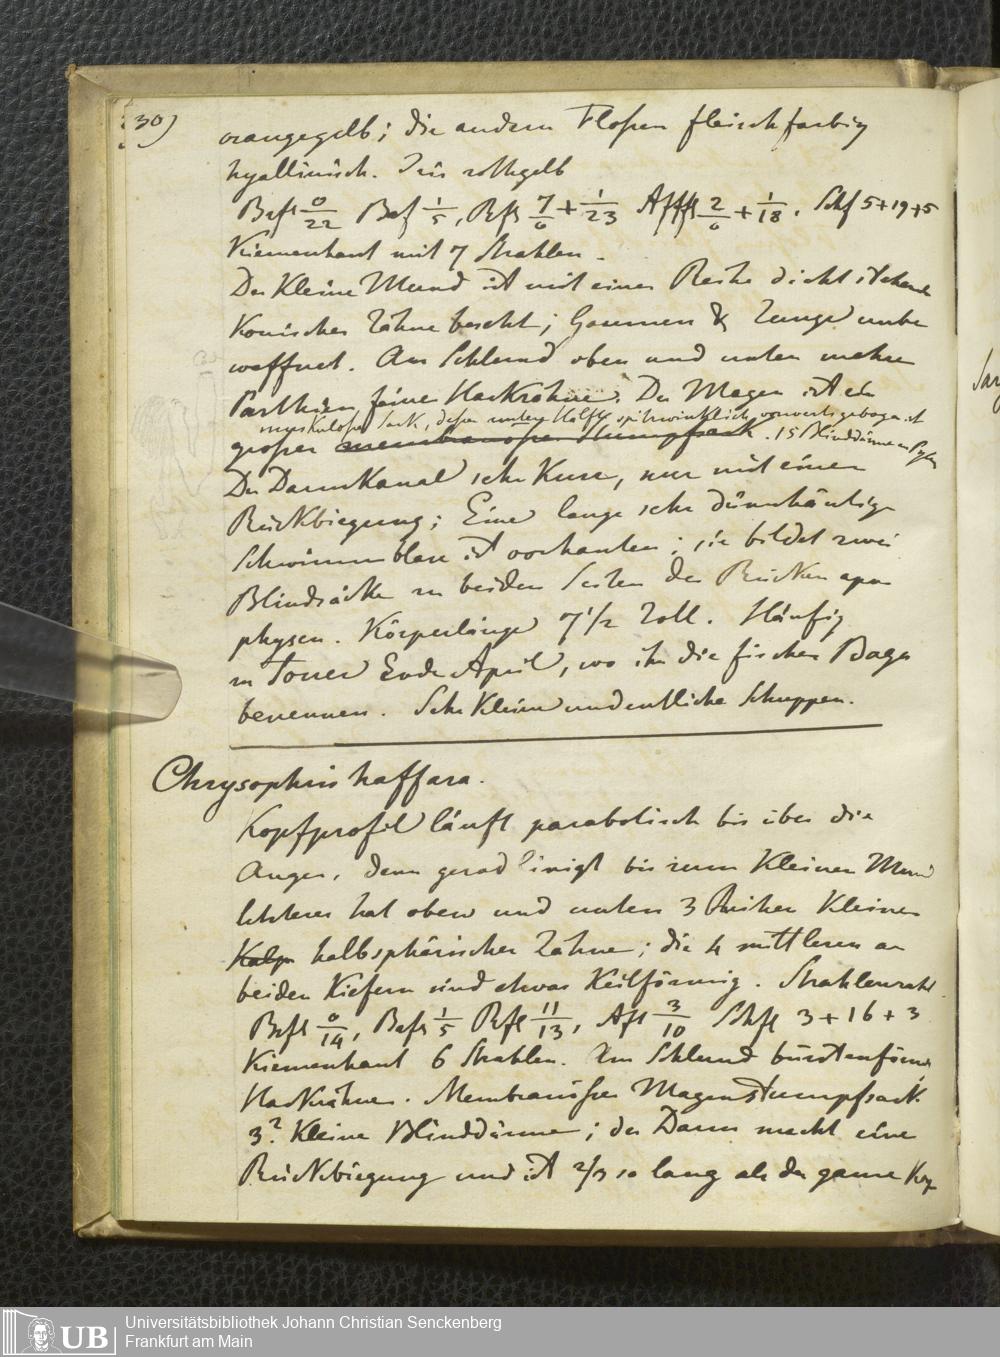 30)
orangegelb; die andern Flossen fleischfarbig
hyallinisch. Iris rothgelb
Brfl 0/22 Bcf 1/5, Rfl 7/0 + 1/23 Affl 2/0 + 1/18. Schf 5+19+5
Kiemenhaut mit 7 Strahlen.
Der Kleine Mund ist mit einer Reihe dicht stehend
Konischer Zähne besetzt; Gaumen & Zunge unbe
waffnet. Am Schlund oben und unten mehre
Parthien feine Hackzähne. Der Magen ist ein
muskuloser Sack, dessen untere Hälfte spitzwinklich vorwerts gebogen ist
großer membranoser Stumpfsack. 15 Blinddärme am Pylor
Der Darmkanal sehr Kurz, nur mit einer
Rückbiegung; Eine lange sehr dünnhäutige
Schwimmblase ist vorhanden; sie bildet zwei
Blindsäcke zu beiden Seiten der Rücken apo
physen. Körperlänge 7 1/2 Zoll. Häufig
in Torer Ende April, wo ihn die fischer Baga
benennen. Sehr Kleine undeutliche Schuppen.
Chrysophris haffara.
Kopfprofil läuft parabolisch bis über die
Augen, dann geradlinigt bis zum Kleinen Mund
letzterer hat oben und unten 3 Reihen Kleiner
Kalp halbsphärischer Zähne; die 4 mittleren an
beiden Kiefern sind etwas Keilförmig. Strahlenzahl
Brfl 0/14, Bcfl 1/5 Rfl 11/13, Afl 3/10 Schfl 3+16+3
Kiemenhaut 6 Strahlen. Im Schlund bürstenförmi
Hackzähne. Membranöser Magenstumpfsack.
3? Kleine Blinddärme; der Darm macht eine
Rückbiegung und ist 2/3 so lang als der ganze Kör
UB
Universitätsbibliothek Johann Christian Senckenberg
Frankfurt am Main